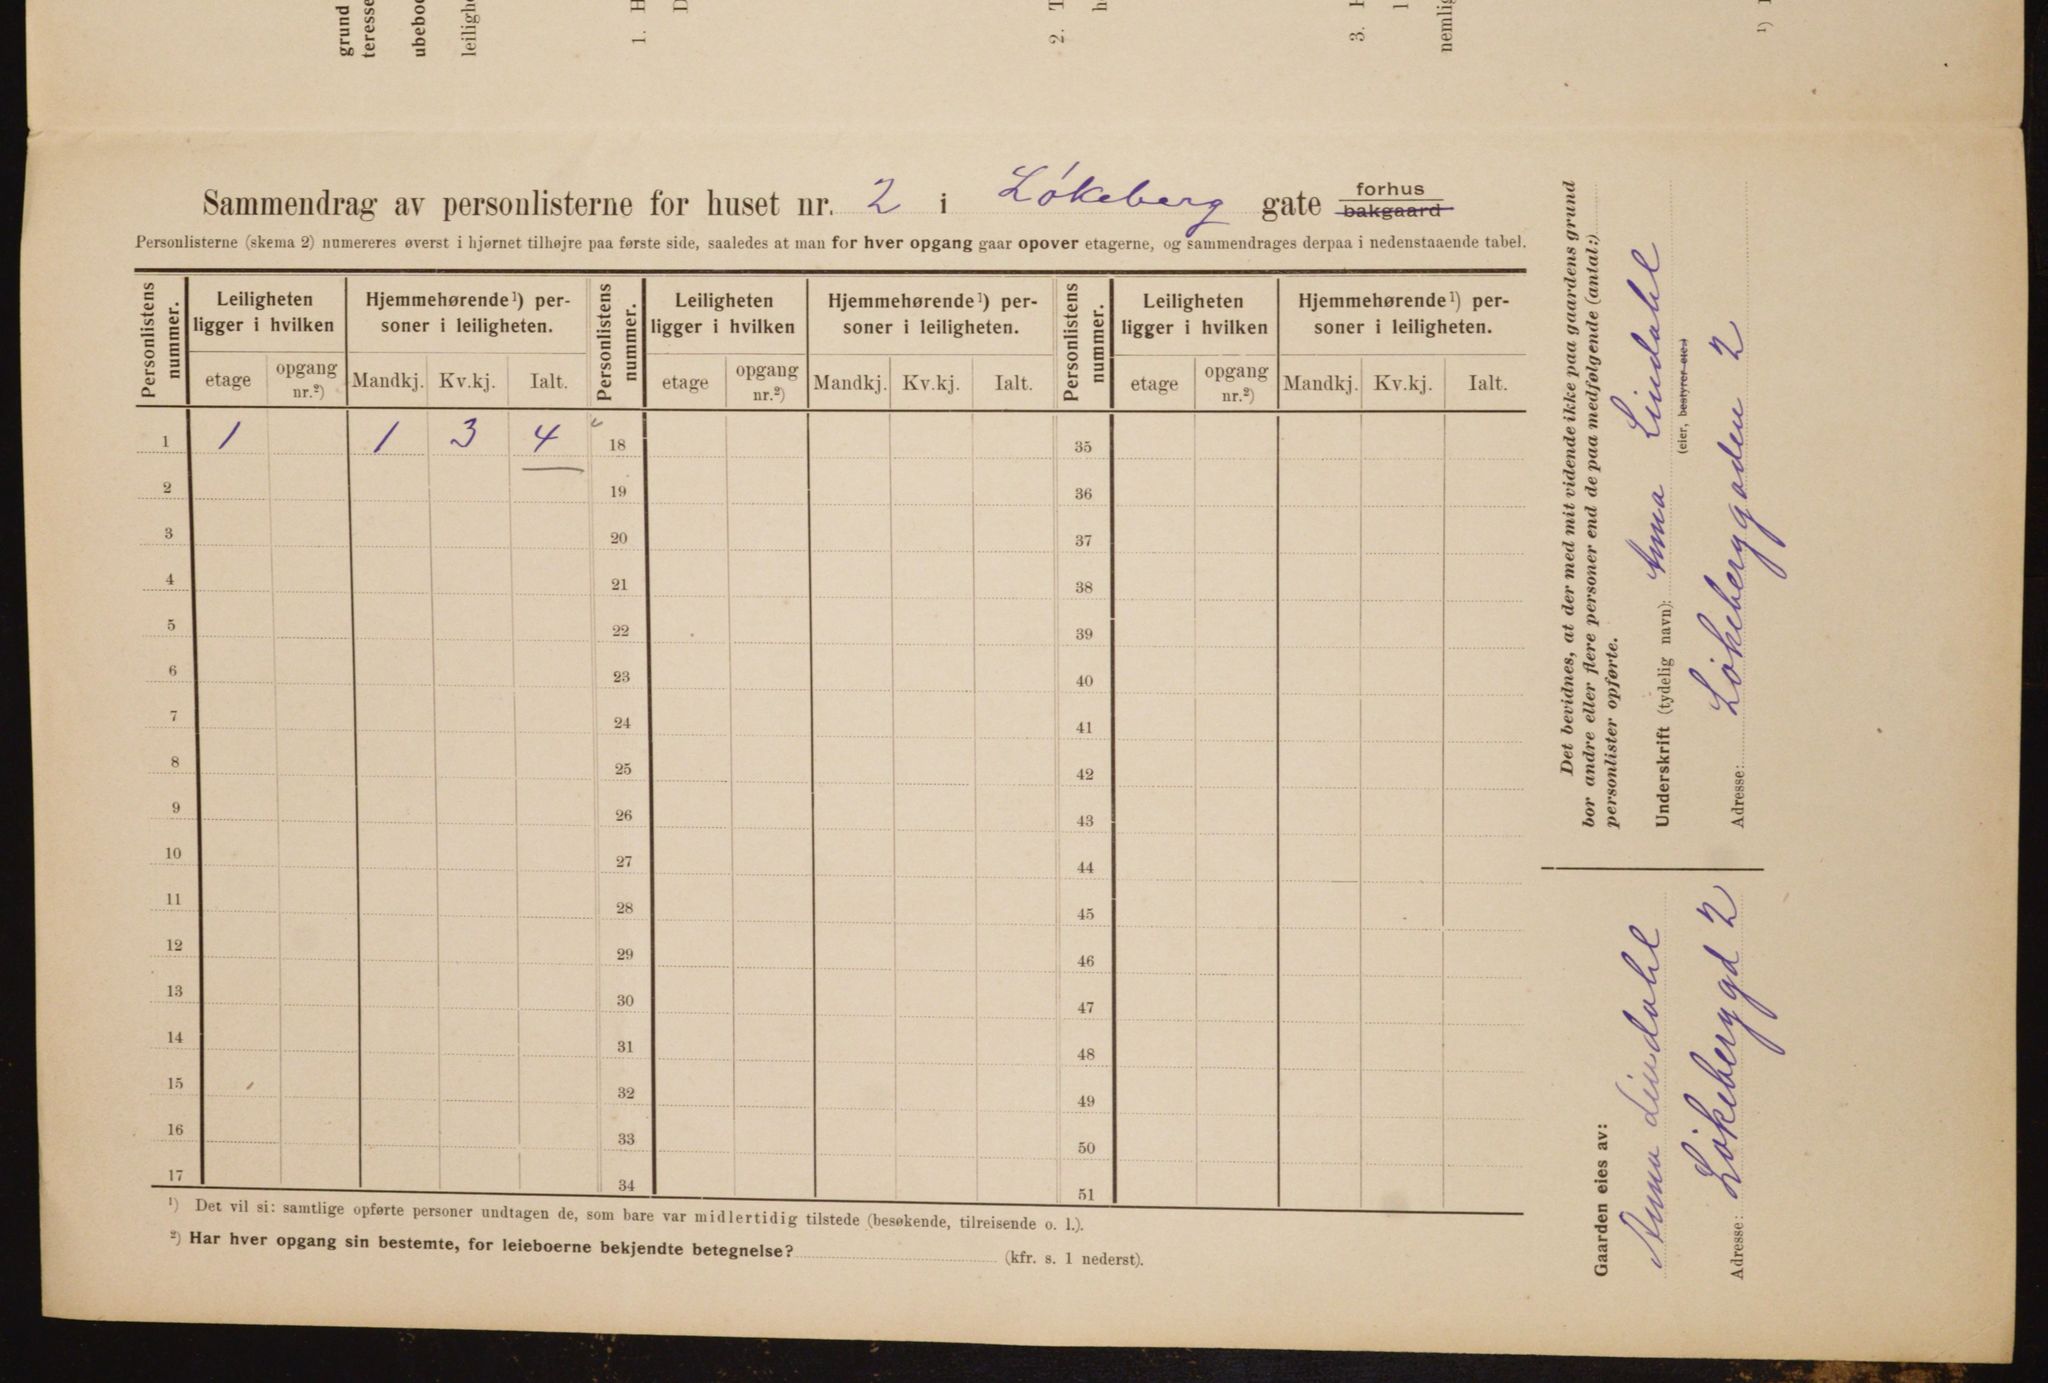 grund
teresse
ubeboe
leilighe
1. H
D
2. T
h
3. H
l
nemlig
¹)
Sammendrag av personlisterne for huset nr. 2 i Løkeberg gate forhus
bakgaard
Personlisterne (skema 2) numereres øverst i hjørnet tilhøjre paa første side, saaledes at man for hver opgang gaar opover etagerne, og sammendrages derpaa i nedenstaaende tabel.
Personlistens nummer. Leiligheten ligger i hvilken Hjemmehørende¹) personer i leiligheten. Personlistens nummer. Leiligheten ligger i hvilken Hjemmehørende¹) personer i leiligheten. Personlistens nummer. Leiligheten ligger i hvilken Hjemmehørende¹) personer i leiligheten.
etage opgang nr.²) Mandkj. Kv.kj. Ialt. etage opgang nr.²) Mandkj. Kv.kj. Ialt. etage opgang nr.²) Mandkj. Kv.kj. Ialt.
1 1 1 3 4 18 35
2 19 36
3 20 37
4 21 38
5 22 39
6 23 40
7 24 41
8 25 42
9 26 43
10 27 44
11 28 45
12 29 46
13 30 47
14 31 48
15 32 49
16 33 50
17 34 51
¹) Det vil si: samtlige opførte personer undtagen de, som bare var midlertidig tilstede (besøkende, tilreisende o. l.).
²) Har hver opgang sin bestemte, for leieboerne bekjendte betegnelse? (kfr. s. 1 nederst).
Det bevidnes, at der med mit vidende ikke paa gaardens grund
bor andre eller flere personer end de paa medfølgende (antal:)
personlister opførte.
Underskrift (tydelig navn): Anna Lindahl
(eier, bestyrer etc.)
Adresse: Løkeberggaden 2
Gaarden eies av:
Anna Lindahl
Adresse: Løkeberggd 2